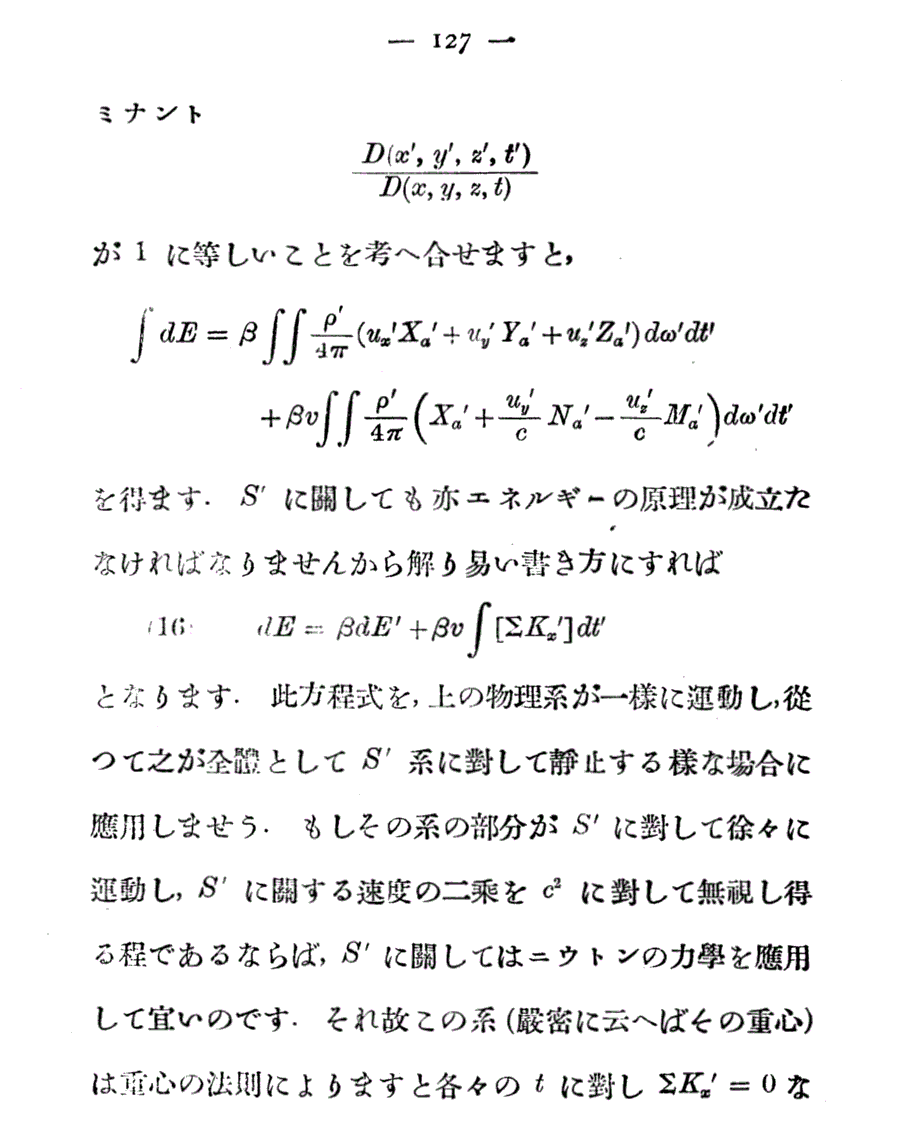 — 127 —
ミナント
D(x′, y′, z′, t′)
D(x, y, z, t)
が 1 に等しいことを考へ合せますと,
∫ dE = β ∬ ρ′/4π (uₓ′Xₐ′ + u_y′Yₐ′ + u_z′Zₐ′) dω′dt′
+ βv ∬ ρ′/4π (Xₐ′ + u_y′/c Nₐ′ − u_z′/c Mₐ′) dω′dt′
を得ます. S′ に關しても亦エネルギーの原理が成立た
なければなりませんから解り易い書き方にすれば
(16) dE = βdE′ + βv ∫ [ΣKₓ′] dt′
となります. 此方程式を, 上の物理系が一樣に運動し, 從
つて之が全體として S′ 系に對して靜止する樣な場合に
應用しませう. もしその系の部分が S′ に對して徐々に
運動し, S′ に關する速度の二乘を c² に對して無視し得
る程であるならば, S′ に關してはニウトンの力學を應用
して宜いのです. それ故この系 (嚴密に云へばその重心)
は重心の法則によりますと各々の t に對し ΣKₓ′ = 0 な